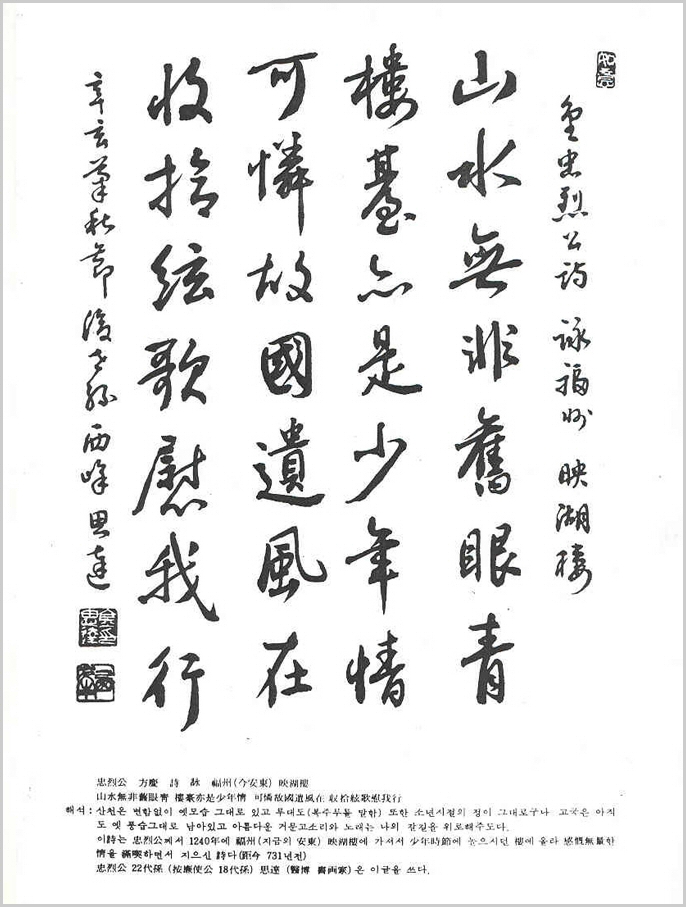 如意
金忠烈公詩 詠福州 映湖樓
山水無非舊眼青
樓臺亦是少年情
可憐故國遺風在
收拾絃歌慰我行
辛亥秋節 後世孫 西峰 思達
忠烈公 方慶 詩 詠 福州(今安東) 映湖樓
山水無非舊眼青 樓臺亦是少年情 可憐故國遺風在 収拾絃歌慰我行
해석 : 산천은 변함없이 옛모습 그대로 있고 루대도(복주루를 말함) 또한 소년시절의 정이 그대로구나 고국은 아직
도 옛 풍습그대로 남아있고 아름다운 거문고소리와 노래는 나의 갈길을 위로해주도다.
이詩는 忠烈公께서 1240年에 福州(지금의 安東) 映湖樓에 가셔서 少年時節에 노으시던 樓에 올라 感慨無量한
情을 滿喫하면서 지으신 詩다(距今 731년전)
忠烈公 22代孫 (按廉使公 18代孫) 思達 (醫博 書画家)은 이글을 쓰다.